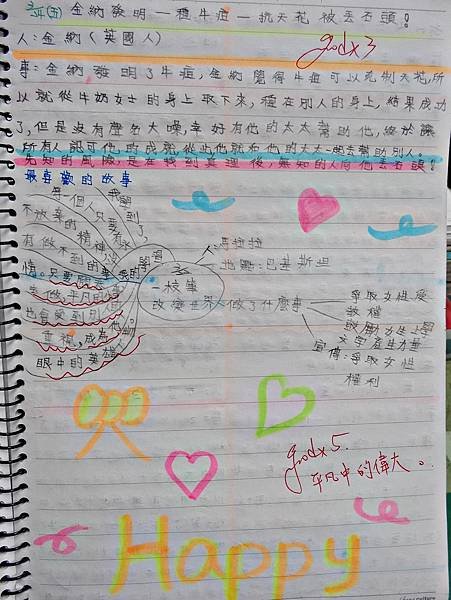 金納發明一種牛痘—抗天花被丟石頭!
人:金納(英國人)
good x 3
事:金納發明了牛痘,金納覺得牛痘可以克制天花,所
以就從牛奶女士的身上取下來,種在別人的身上,結果成功
了,但是沒有聲名大噪,幸好有他的太太幫助他,終於讓
所有人認可他的成就,從此他就和他的太太一起去幫助別人。
先知的風險,是在找到真理後,無知的人向他丟石頭!
最喜歡的故事
每一個人只要
不放棄的精神,沒
有做不到的事
情。只要
去做,平凡的事
也會受到別人
重視,成為他
眼中的英雄
我的學習
一枝筆
改變世界
馬拉拉
地點:巴基斯坦
做了什麼事
爭取女性受
教權
文字產生力量
宣傳:爭取女性
權利
good x 5.
平凡中的偉大。
Happy